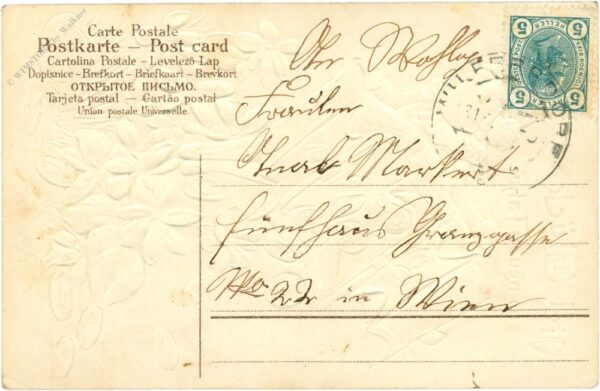 Carte Postale
Postkarte — Post card
Cartolina Postale – Levelező-Lap
Dopisnice – Brefkort – Briefkaart – Brevkort
ОТКРЫТОЕ ПИСЬМО.
Tarjeta postal – Cartão postal
Union postale Universelle.
5 HELLER 5
5 5
Wohlg
Fräulein
Markert
fünfhaus Granzgasse
No 22 in Wien